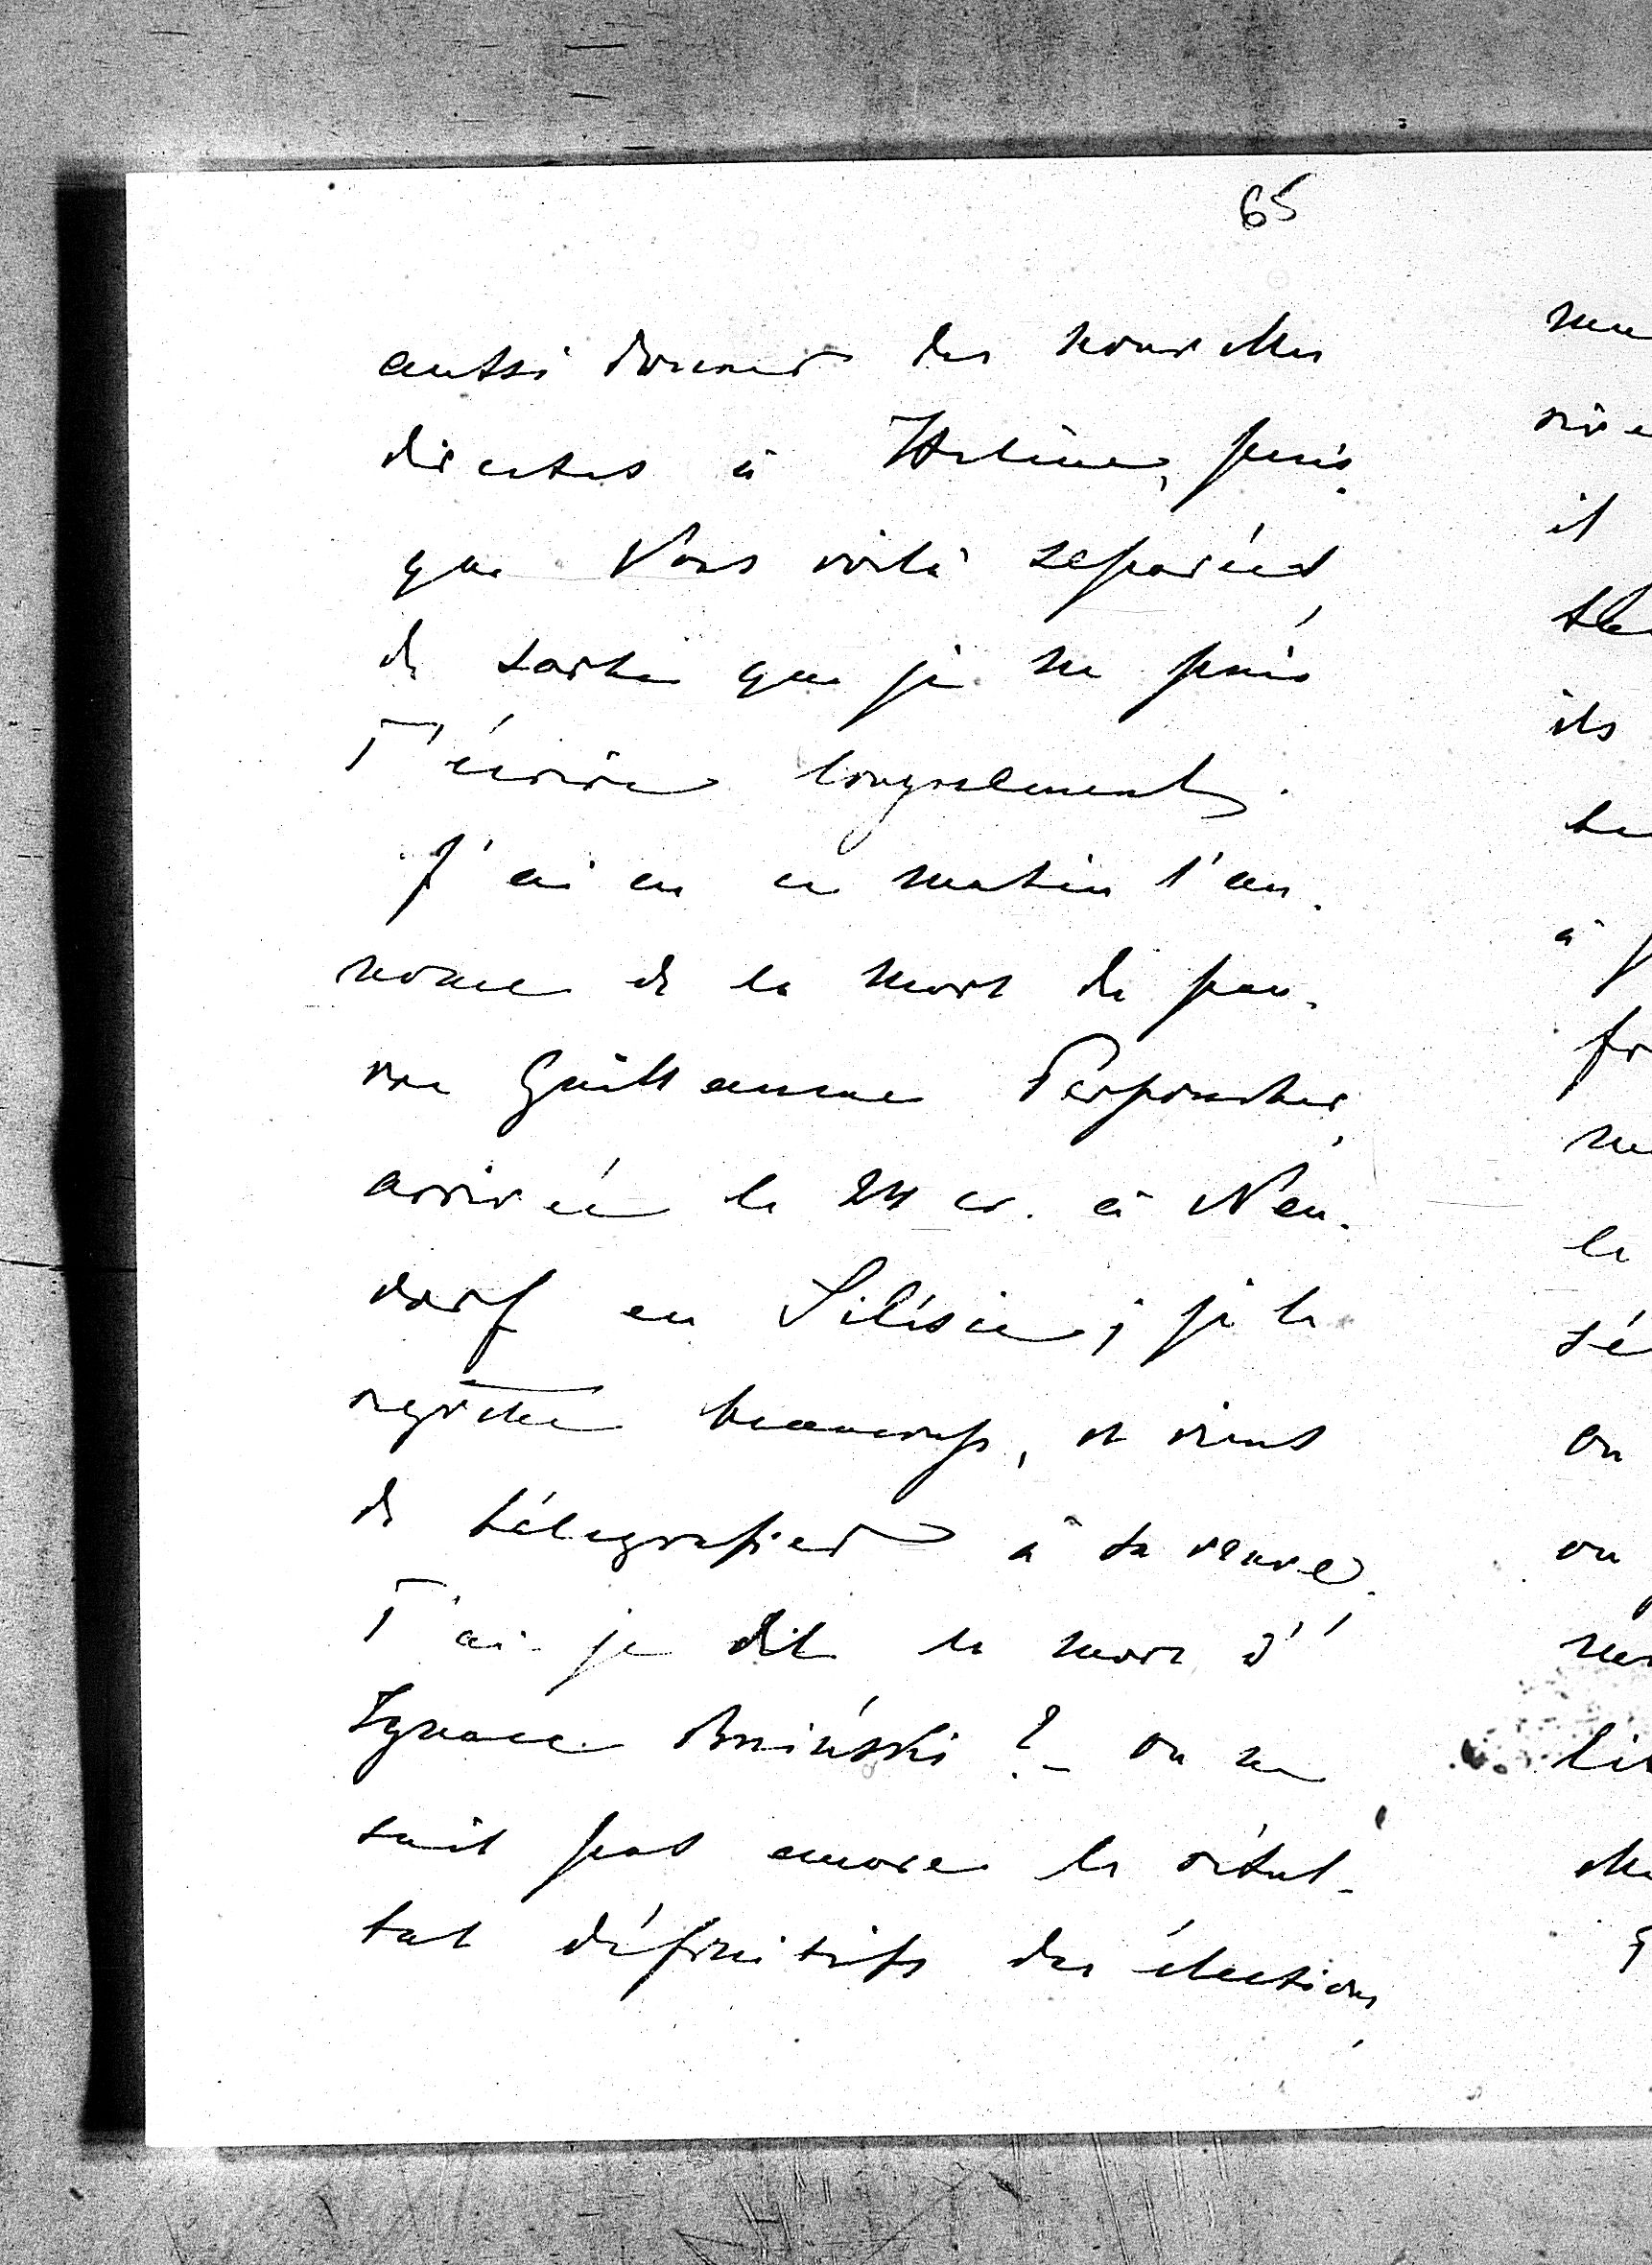 65
aussi donner des nouvelles
directes à Hélène, puis-
que Vous voilà separées,
de sorte que je ne puis
T'écrire longuement.
J'ai eu ce matin l'an-
nonce de la mort du pau-
vre Guillaume Perponcher,
arrivée le 24 cr. à Neu-
dorf en Silésie; je le
regrette beaucoup, et viens
de télégrafier à sa veuve.
T'ai-je dit la mort d'
Ignace Bniński? - On ne
sait pas encore le résul-
tat définitif des élections,